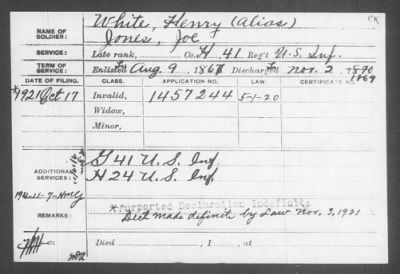 White, Henry (alias) CK
NAME OF SOLDIER: Jones, Joe
SERVICE: Late rank, Co. H, 41 Reg't U.S. Inf.
TERM OF SERVICE: Enlisted Aug. 9, 1867 Discharged Nov. 2, 1870
1869
DATE OF FILING. CLASS. APPLICATION NO. LAW. CERTIFICATE NO.
1921 Oct 17 Invalid, 1457244 5-1-20
Widow,
Minor,
ADDITIONAL SERVICES: G 41 U.S. Inf.
H 24 U.S. Inf.
REMARKS: *Purported Declaration Indefinite
Decl made definite by Law Nov. 3, 1921
Died , 1 , at